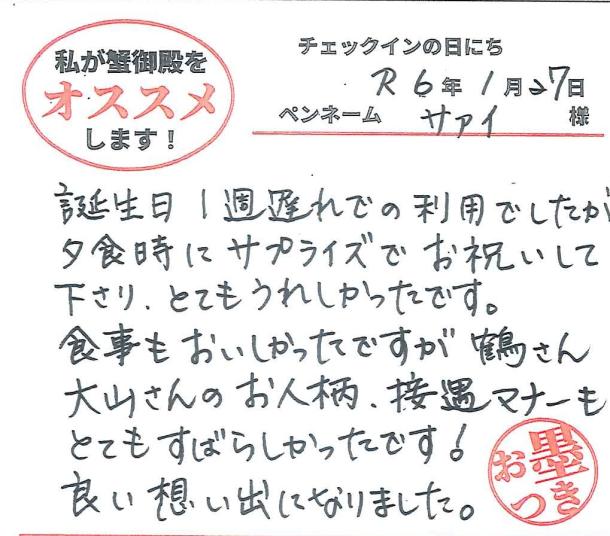 私が蟹御殿を
オススメ
します！
チェックインの日にち
R6年1月27日
ペンネーム サァイ 様
誕生日1週遅れでの利用でしたが
夕食時にサプライズでお祝いして
下さり、とてもうれしかったです。
食事もおいしかったですが鶴さん
大山さんのお人柄、接遇マナーも
とてもすばらしかったです！
良い想い出になりました。
お墨つき